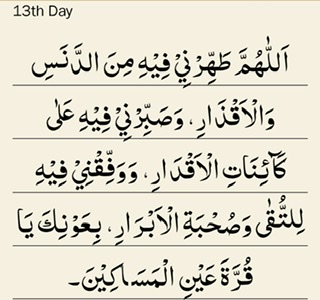 13th Day
اَللّٰهُمَّ طَهِّرْنِيْ فِيْهِ مِنَ الدَّنَسِ
وَالْاَقْذَارِ، وَصَبِّرْنِيْ فِيْهِ عَلٰى
كَآئِنَاتِ الْاَقْدَارِ، وَوَفِّقْنِيْ فِيْهِ
لِلتُّقٰى وَصُحْبَةِ الْاَبْرَارِ، بِعَوْنِكَ يَا
قُرَّةَ عَيْنِ الْمَسَاكِيْنَ۔